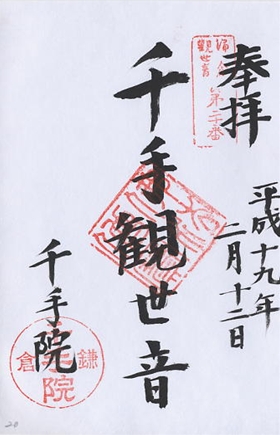 奉拝
平成十九年
二月十二日
千手観世音
千手院
鎌倉
観世音
第二十番
20